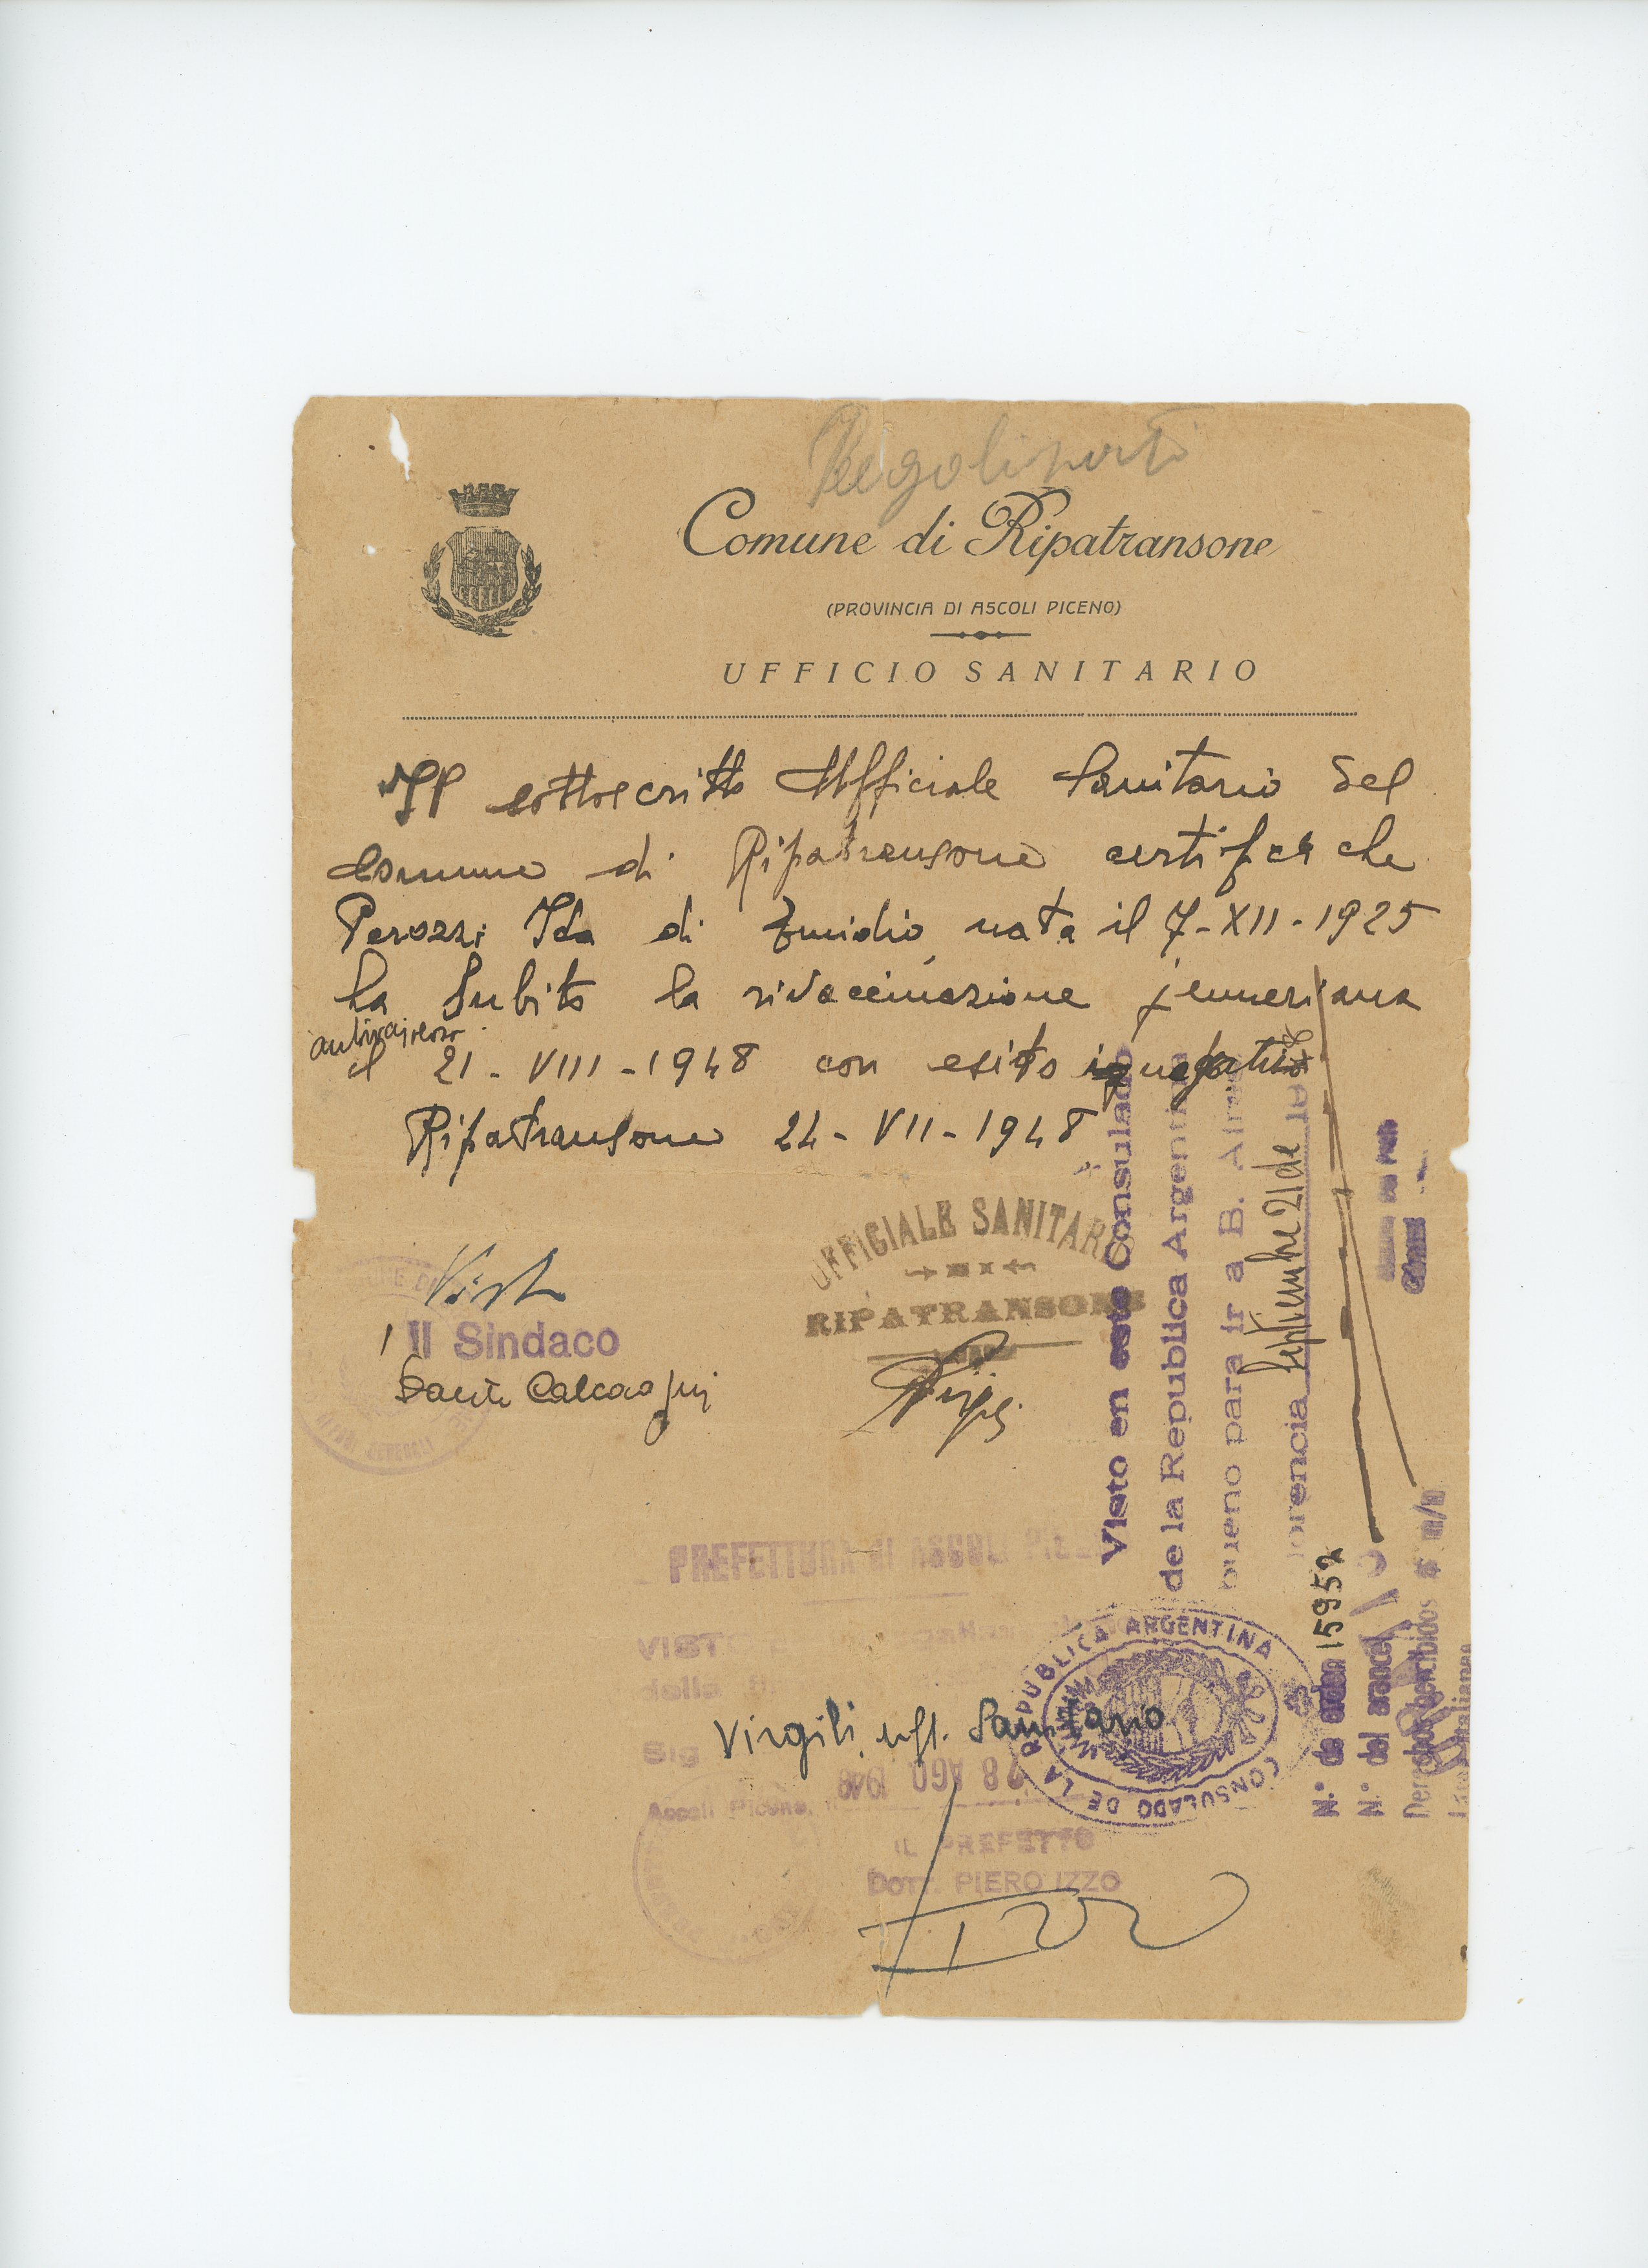 Comune di Ripatransone
(PROVINCIA DI ASCOLI PICENO)
UFFICIO SANITARIO
Il sottoscritto Ufficiale Sanitario del
Comune di Ripatransone certifica che
Perozzi Ida di Emidio nata il 7-XII-1925
ha subito la rivaccinazione jenneriana
antivaiolosa
il 21-VIII-1948 con esito negativo
Ripatransone 24-VII-1948
UFFICIALE SANITARIO
DI
RIPATRANSONE
Visto
Il Sindaco
Virgili
PREFETTURA DI ASCOLI PICENO
VISTO
della
Sig
Virgili uff. Sanitario
Ascoli Piceno, 28 AGO 1948
IL PREFETTO
DOTT. PIERO IZZO
Visto en este Consulado
de la Republica Argentina
bueno para ir a B. Aires
Florencia Septiembre 21 de
CONSULADO DE LA REPUBLICA ARGENTINA
N.º de orden 15952
N.º del arancel
Derechos percibidos $ m/n